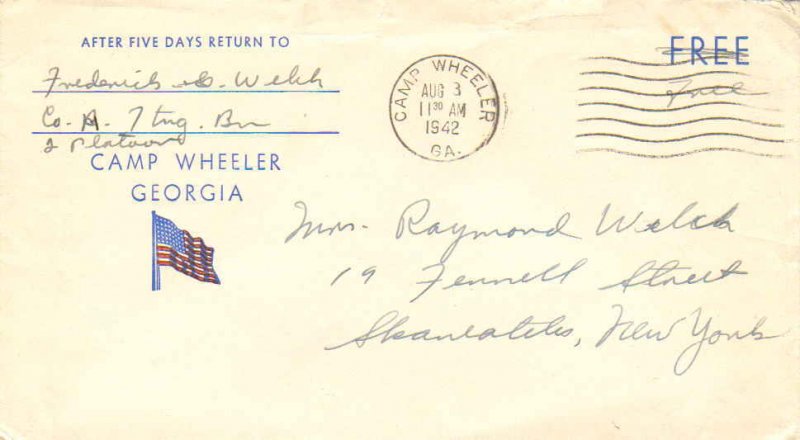 AFTER FIVE DAYS RETURN TO
Frederick S. Welch
Co. A. 7 Tng. Bn
2 Platoon
CAMP WHEELER
GEORGIA
CAMP WHEELER
AUG 3
11 30 AM
1942
GA.
FREE
Free
Mrs. Raymond Welch
19 Fennell Street
Skaneateles, New York